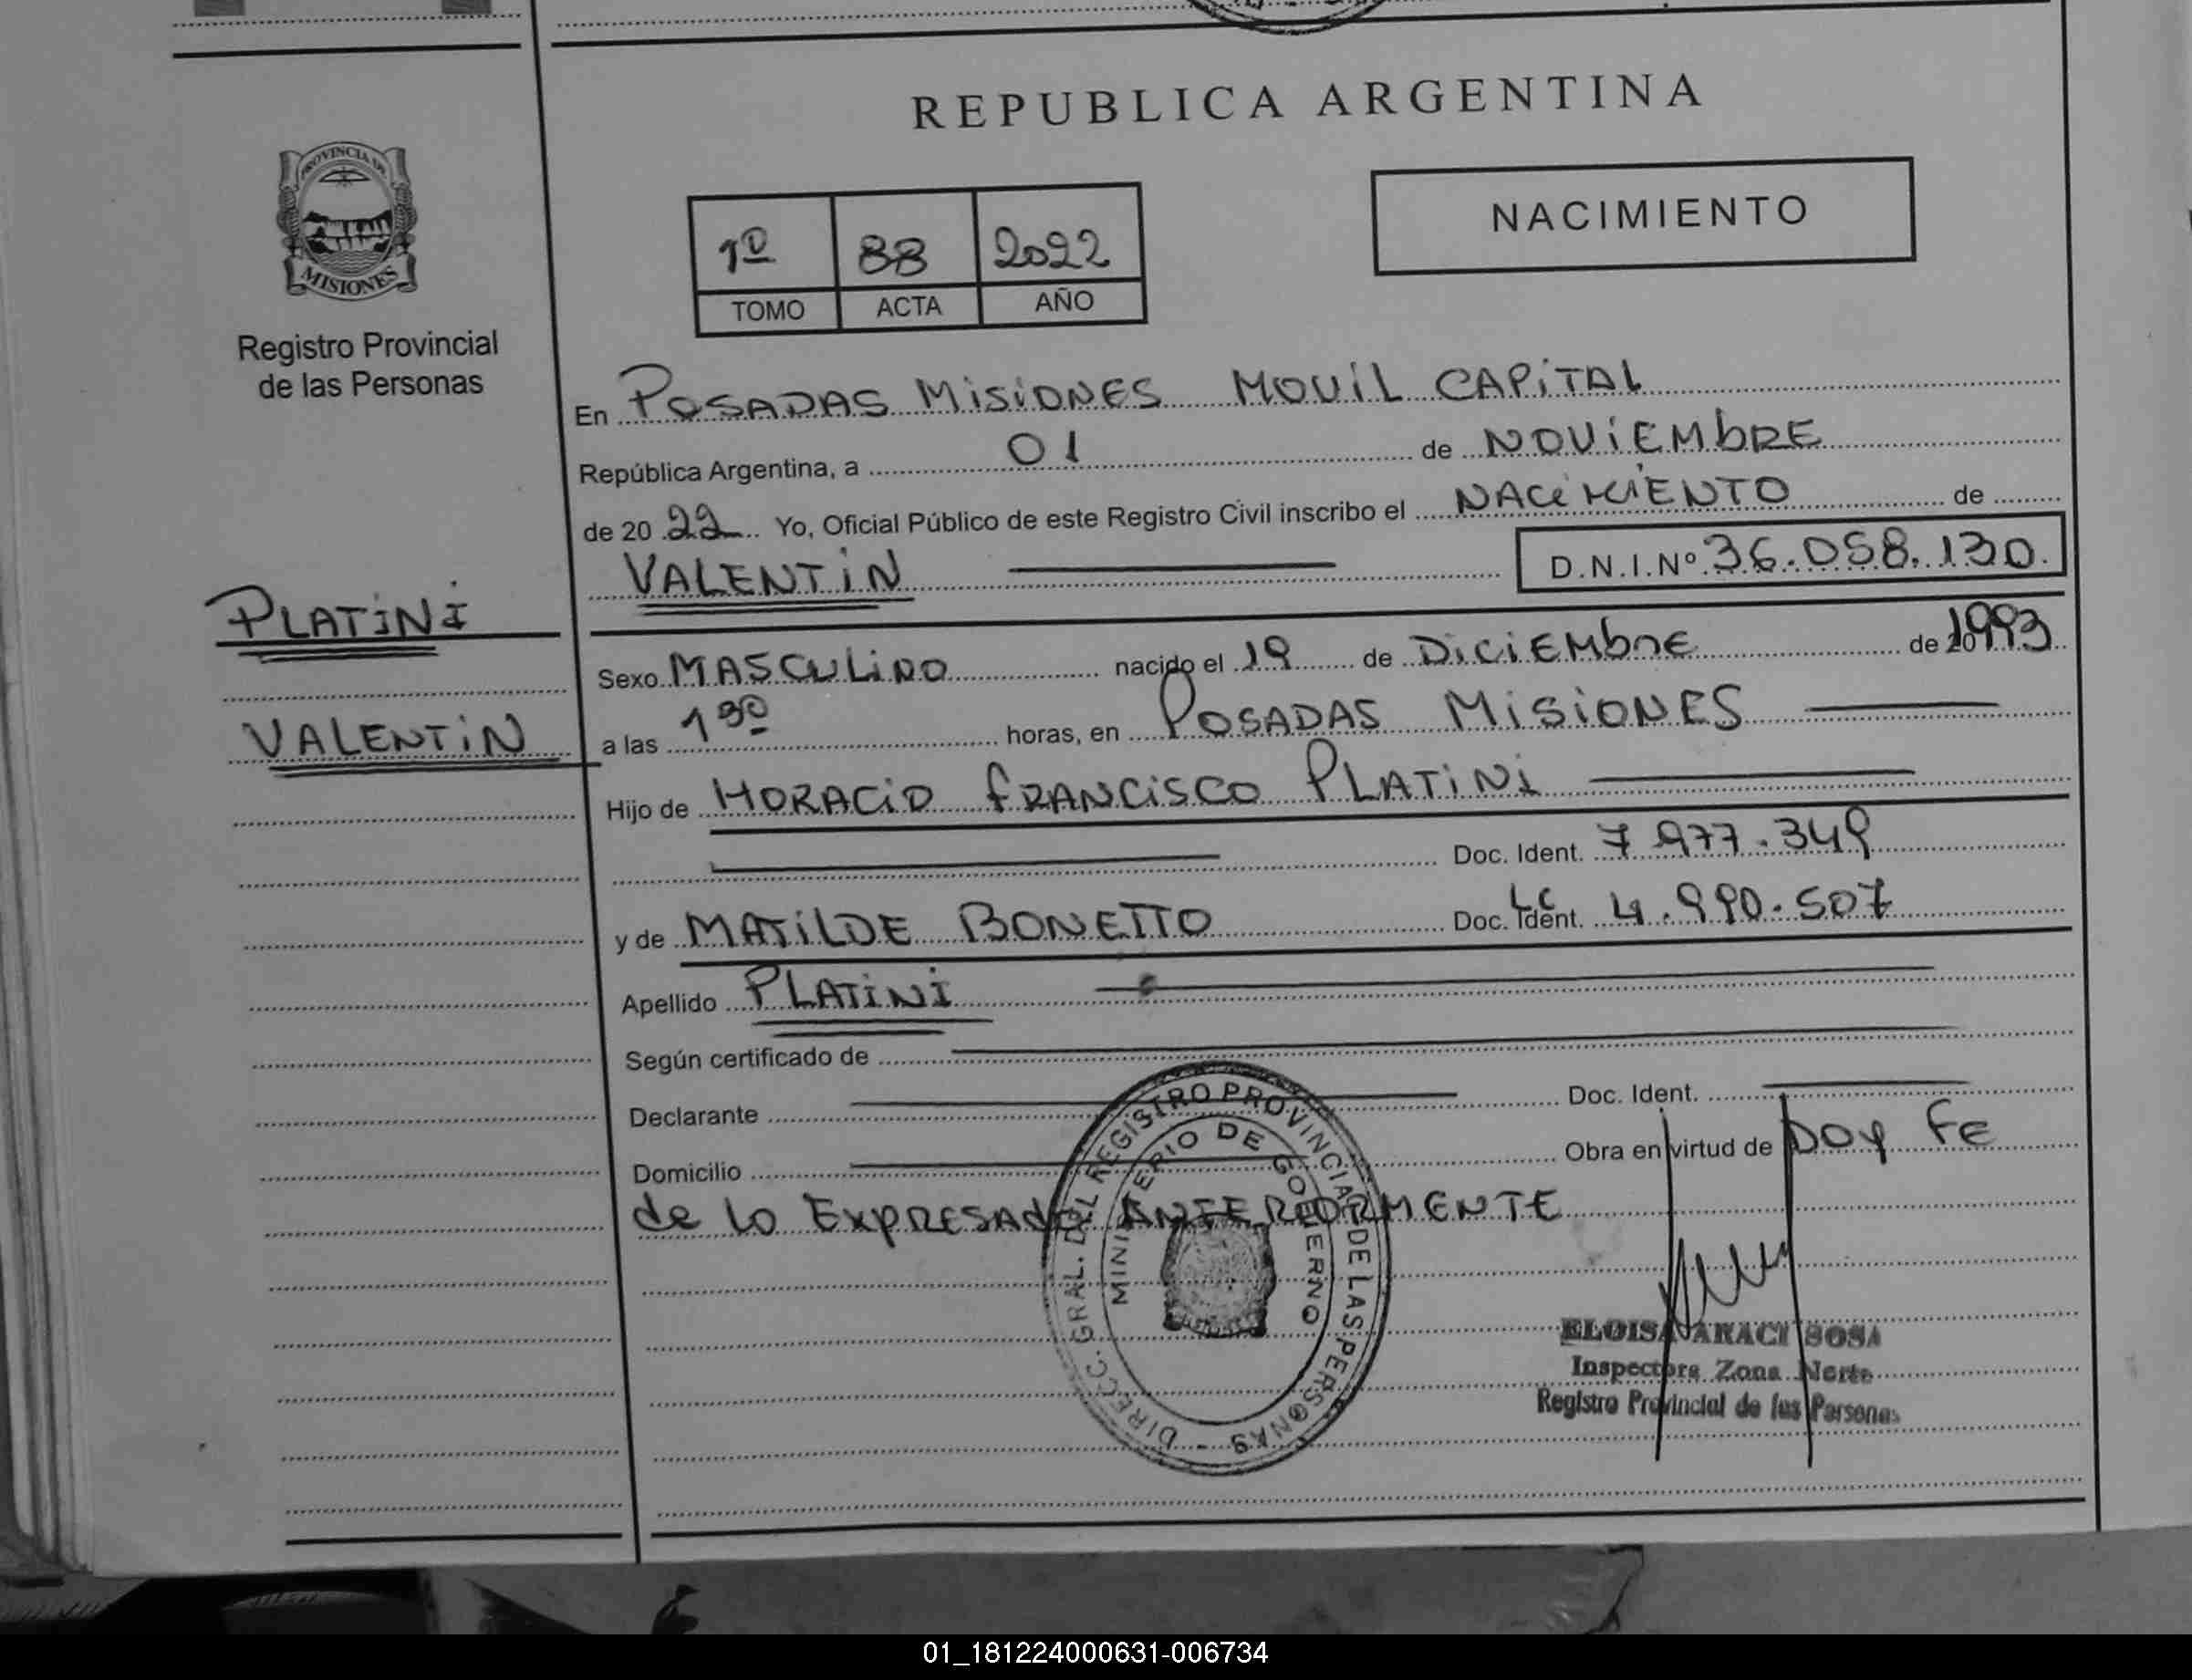 REPUBLICA ARGENTINA
PROVINCIA DE
MISIONES
Registro Provincial
de las Personas
1º 88 2022
TOMO ACTA AÑO
NACIMIENTO
En POSADAS MISIONES MOVIL CAPITAL
República Argentina, a 01 de NOVIEMBRE
de 20 22 Yo, Oficial Público de este Registro Civil inscribo el NACIMIENTO de
VALENTIN D.N.I.Nº 36.058.130.
PLATINI
VALENTIN
Sexo MASCULINO nacido el 19 de DICIEMBRE de 20 1993
a las 1 30 horas, en POSADAS MISIONES
Hijo de HORACIO FRANCISCO PLATINI
Doc. Ident. 7 977.349
y de MATILDE BONETTO Doc. Ident. LC 4.990.507
Apellido PLATINI
Según certificado de
Declarante Doc. Ident.
Domicilio Obra en virtud de DOY FE
de lo EXPRESADO ANTERIORMENTE
DIRECC. GRAL. DEL REGISTRO PROVINCIAL DE LAS PERSONAS -
MINISTERIO DE GOBIERNO
ELOISA ARACI SOSA
Inspectora Zona Norte
Registro Provincial de las Personas
01_181224000631-006734